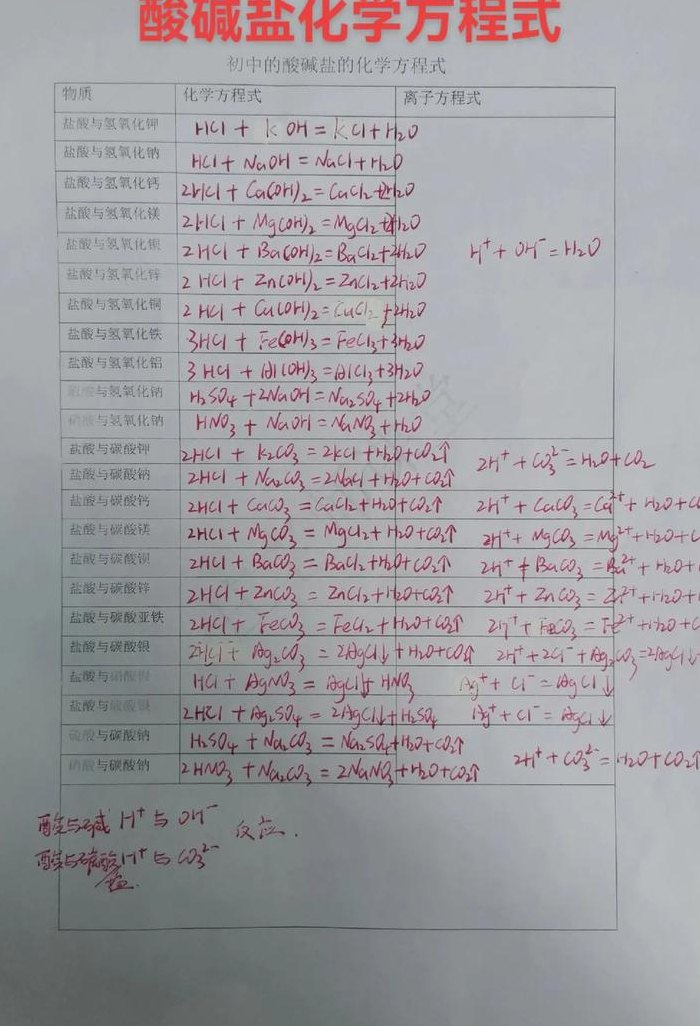 酸碱盐化学方程式
初中的酸碱盐的化学方程式
物质 化学方程式 离子方程式
盐酸与氢氧化钾 HCl + KOH = KCl + H2O
盐酸与氢氧化钠 HCl + NaOH = NaCl + H2O
盐酸与氢氧化钙 2HCl + Ca(OH)2 = CaCl2 + 2H2O
盐酸与氢氧化镁 2HCl + Mg(OH)2 = MgCl2 + 2H2O
盐酸与氢氧化钡 2HCl + Ba(OH)2 = BaCl2 + 2H2O H⁺ + OH⁻ = H2O
盐酸与氢氧化锌 2HCl + Zn(OH)2 = ZnCl2 + 2H2O
盐酸与氢氧化铜 2HCl + Cu(OH)2 = CuCl2 + 2H2O
盐酸与氢氧化铁 3HCl + Fe(OH)3 = FeCl3 + 3H2O
盐酸与氢氧化铝 3HCl + Al(OH)3 = AlCl3 + 3H2O
硫酸与氢氧化钠 H2SO4 + 2NaOH = Na2SO4 + 2H2O
硝酸与氢氧化钠 HNO3 + NaOH = NaNO3 + H2O
盐酸与碳酸钾 2HCl + K2CO3 = 2KCl + H2O + CO2↑
盐酸与碳酸钠 2HCl + Na2CO3 = 2NaCl + H2O + CO2↑ 2H⁺ + CO3²⁻ = H2O + CO2
盐酸与碳酸钙 2HCl + CaCO3 = CaCl2 + H2O + CO2↑ 2H⁺ + CaCO3 = Ca²⁺ + H2O + C
盐酸与碳酸镁 2HCl + MgCO3 = MgCl2 + H2O + CO2↑ 2H⁺ + MgCO3 = Mg²⁺ + H2O + C
盐酸与碳酸钡 2HCl + BaCO3 = BaCl2 + H2O + CO2↑ 2H⁺ + BaCO3 = Ba²⁺ + H2O +
盐酸与碳酸锌 2HCl + ZnCO3 = ZnCl2 + H2O + CO2↑ 2H⁺ + ZnCO3 = Zn²⁺ + H2O +
盐酸与碳酸亚铁 2HCl + FeCO3 = FeCl2 + H2O + CO2↑ 2H⁺ + FeCO3 = Fe²⁺ + H2O + C
盐酸与碳酸银 2HCl + Ag2CO3 = 2AgCl↓ + H2O + CO2↑ 2H⁺ + 2Cl⁻ + Ag2CO3 = 2AgCl↓
盐酸与硝酸银 HCl + AgNO3 = AgCl↓ + HNO3 Ag⁺ + Cl⁻ = AgCl↓
盐酸与硫酸银 2HCl + Ag2SO4 = 2AgCl↓ + H2SO4 Ag⁺ + Cl⁻ = AgCl↓
硫酸与碳酸钠 H2SO4 + Na2CO3 = Na2SO4 + H2O + CO2↑
硝酸与碳酸钠 2HNO3 + Na2CO3 = 2NaNO3 + H2O + CO2↑ 2H⁺ + CO3²⁻ = H2O + CO2↑
酸与碱 H⁺ 与 OH⁻ 反应.
酸与碳酸盐 H⁺ 与 CO3²⁻